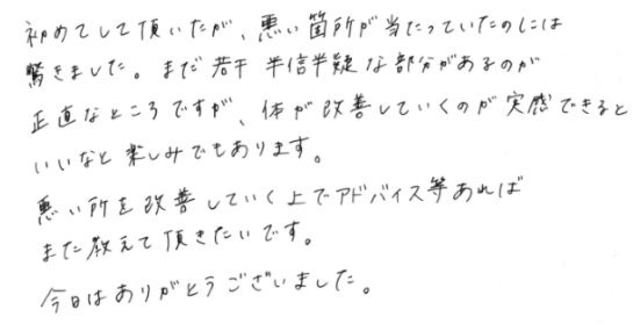 初めてして頂いたが、悪い箇所が当たっていたのには
驚きました。まだ若干 半信半疑な部分があるのが
正直なところですが、体が改善していくのが実感できると
いいなと楽しみでもあります。
悪い所を改善していく上でアドバイス等あれば
また教えて頂きたいです。
今日はありがとうございました。